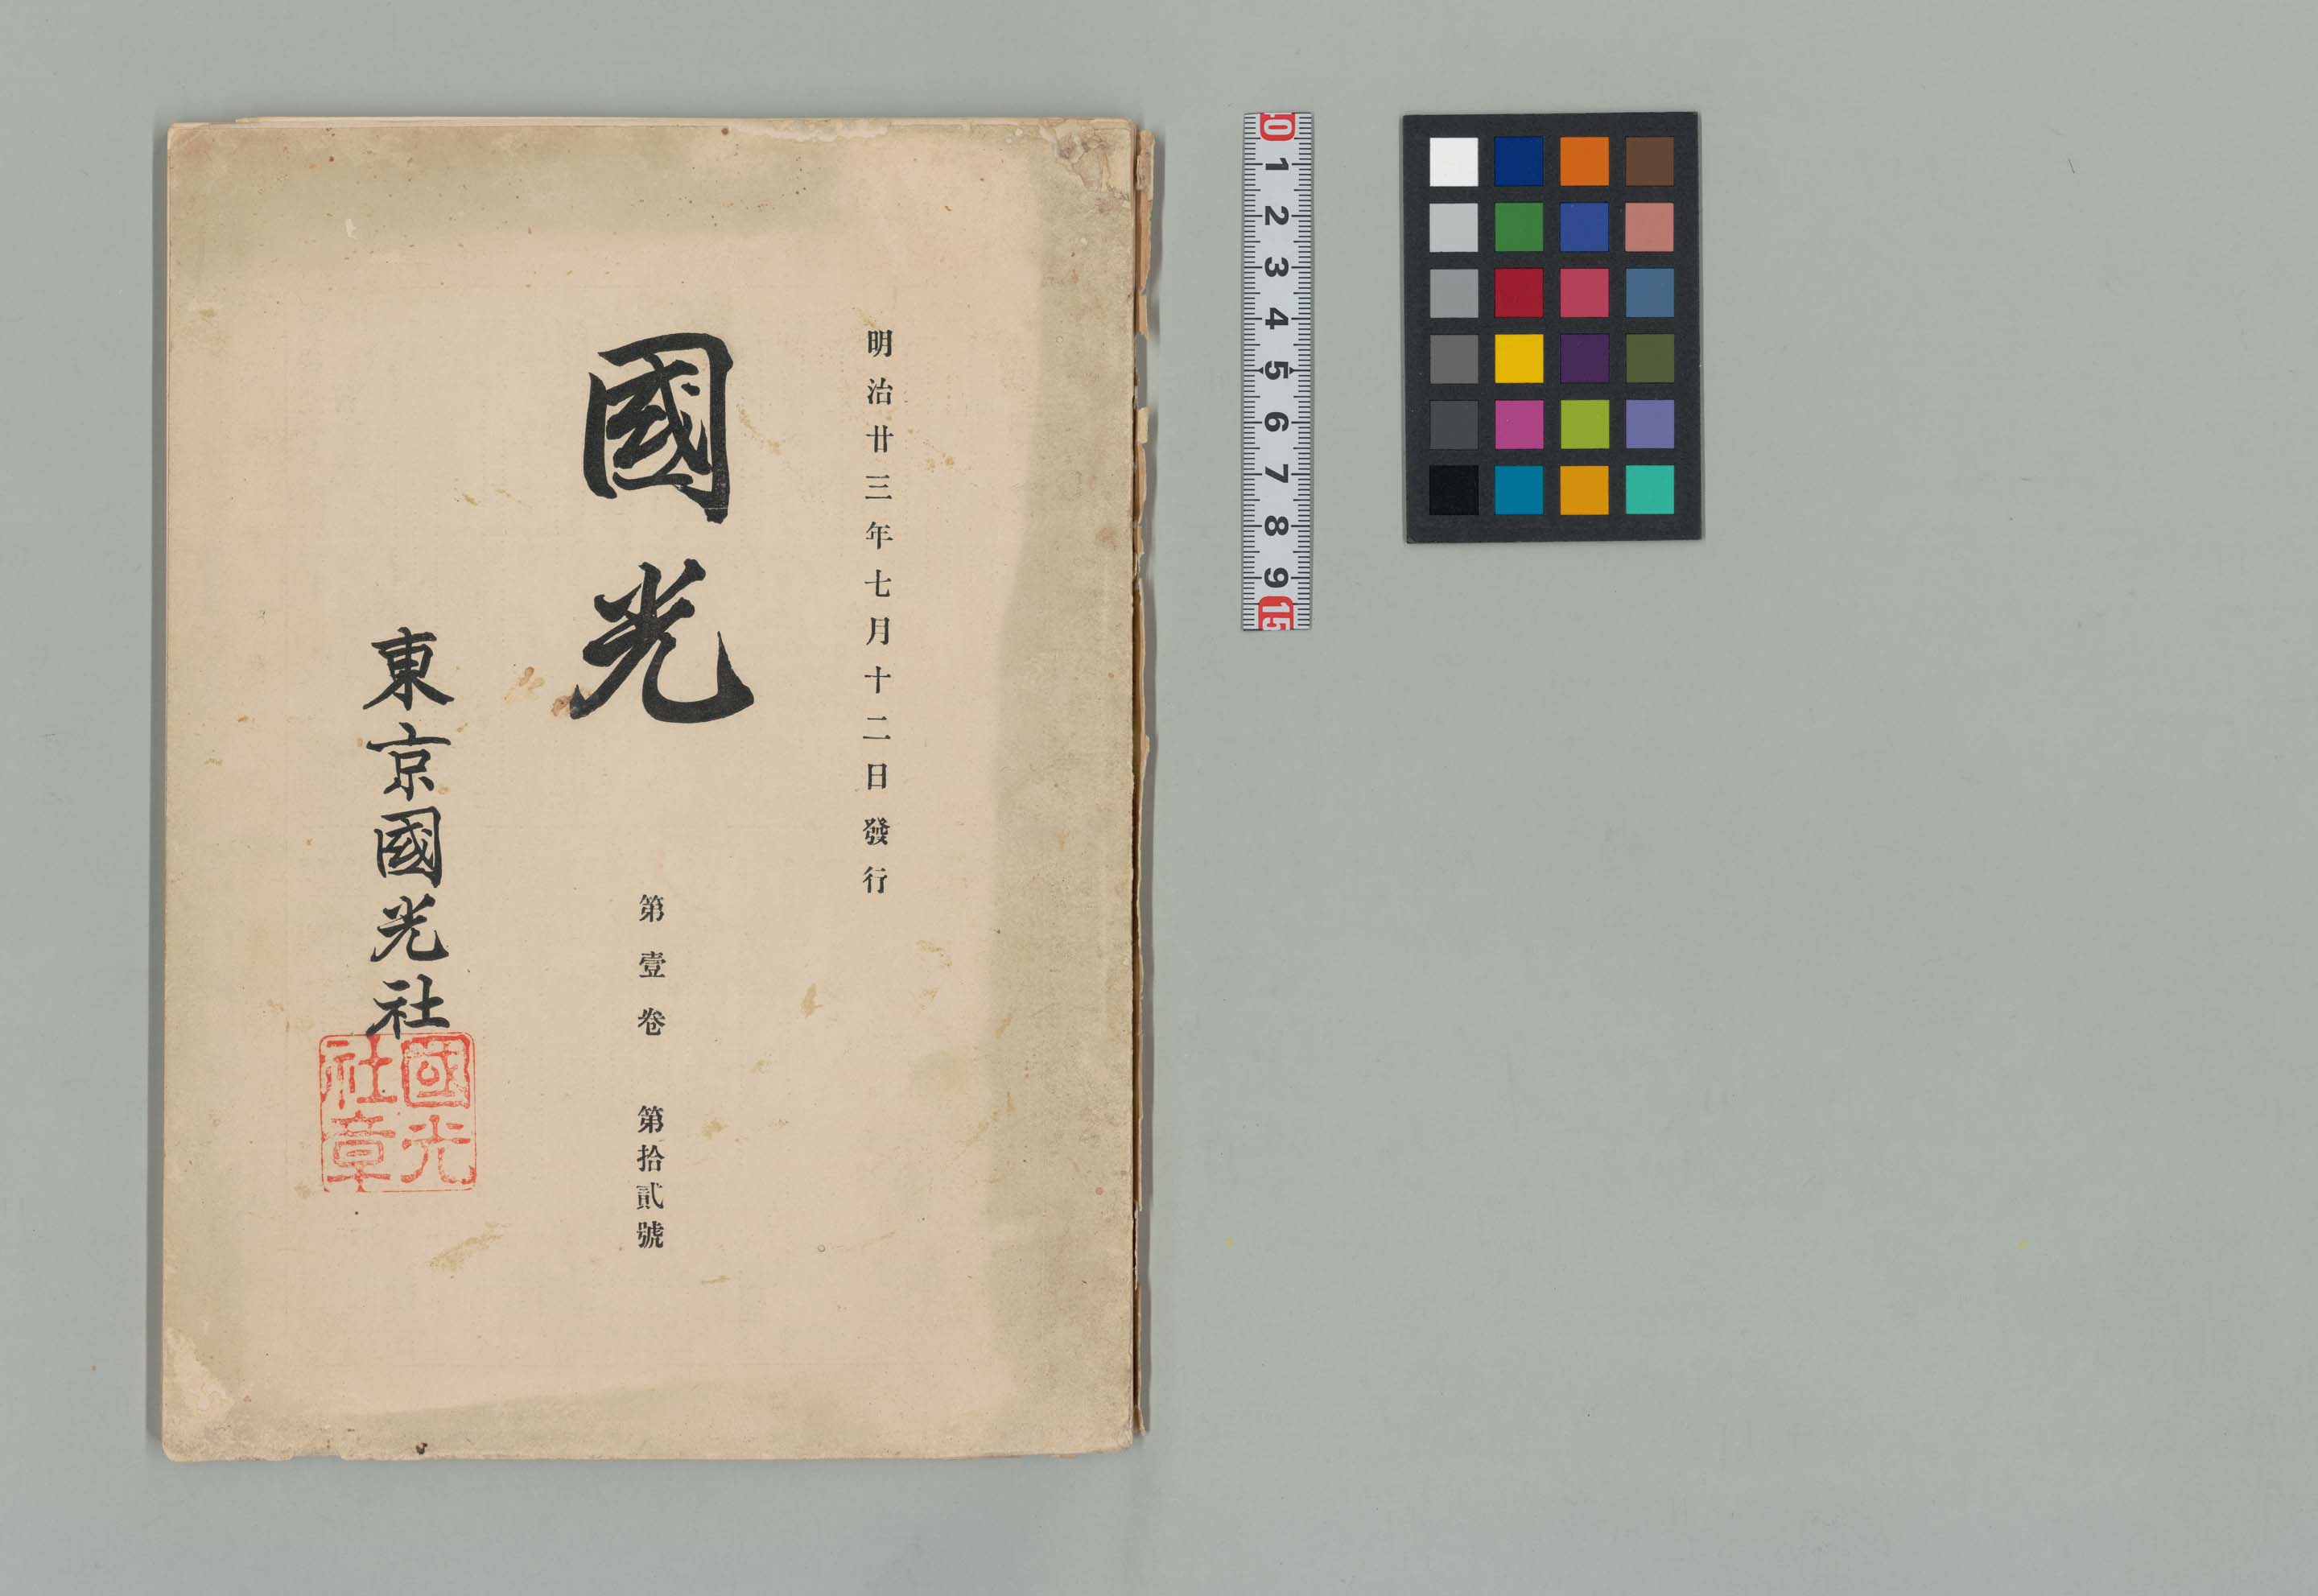 明治廿三年七月十二日發行
國光
第壹卷 第拾貳號
東京國光社
國光
社章
0 1 2 3 4 5 6 7 8 9 15